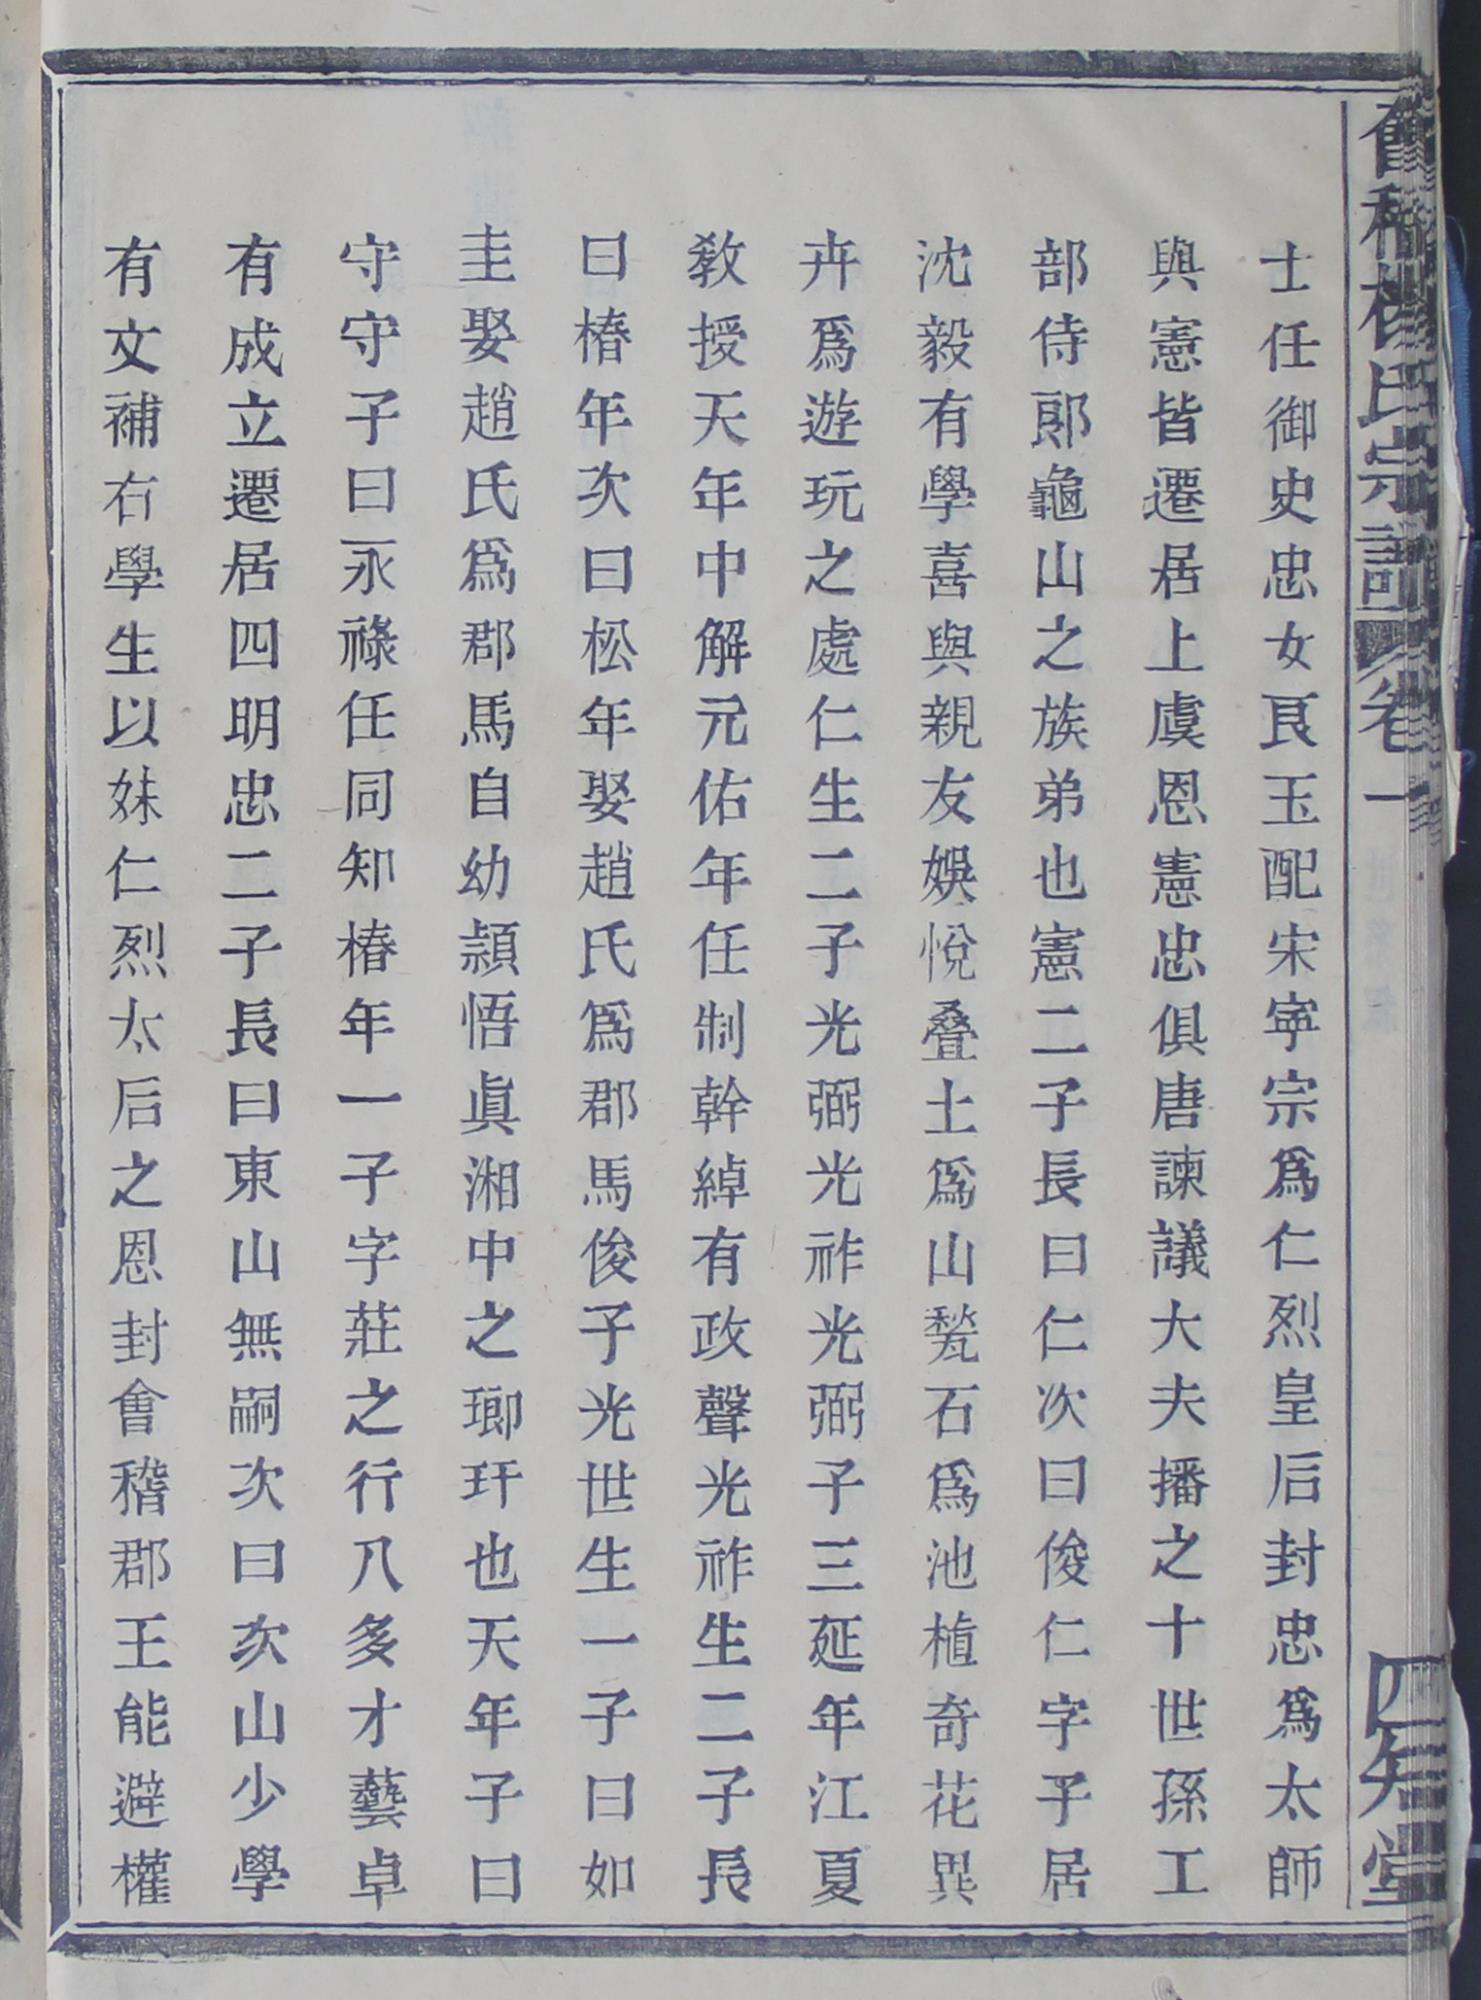 會稽楊氏宗譜 卷一 四知堂
士任御史忠女艮玉配宋寧宗爲仁烈皇后封忠爲太師
與憲皆遷居上虞恩憲忠俱唐諫議大夫播之十世孫工
部侍郞龜山之族弟也憲二子長曰仁次曰俊仁字子居
沈毅有學喜與親友娛悅叠土爲山甃石爲池植奇花異
卉爲遊玩之處仁生二子光弼光祚光弼子三延年江夏
敎授天年中解元佑年任制幹綽有政聲光祚生二子長
曰椿年次曰松年娶趙氏爲郡馬俊子光世生一子曰如
圭娶趙氏爲郡馬自幼頴悟眞湘中之瑯玕也天年子曰
守守子曰永祿任同知椿年一子字莊之行八多才藝卓
有成立遷居四明忠二子長曰東山無嗣次曰次山少學
有文補右學生以妹仁烈太后之恩封會稽郡王能避權